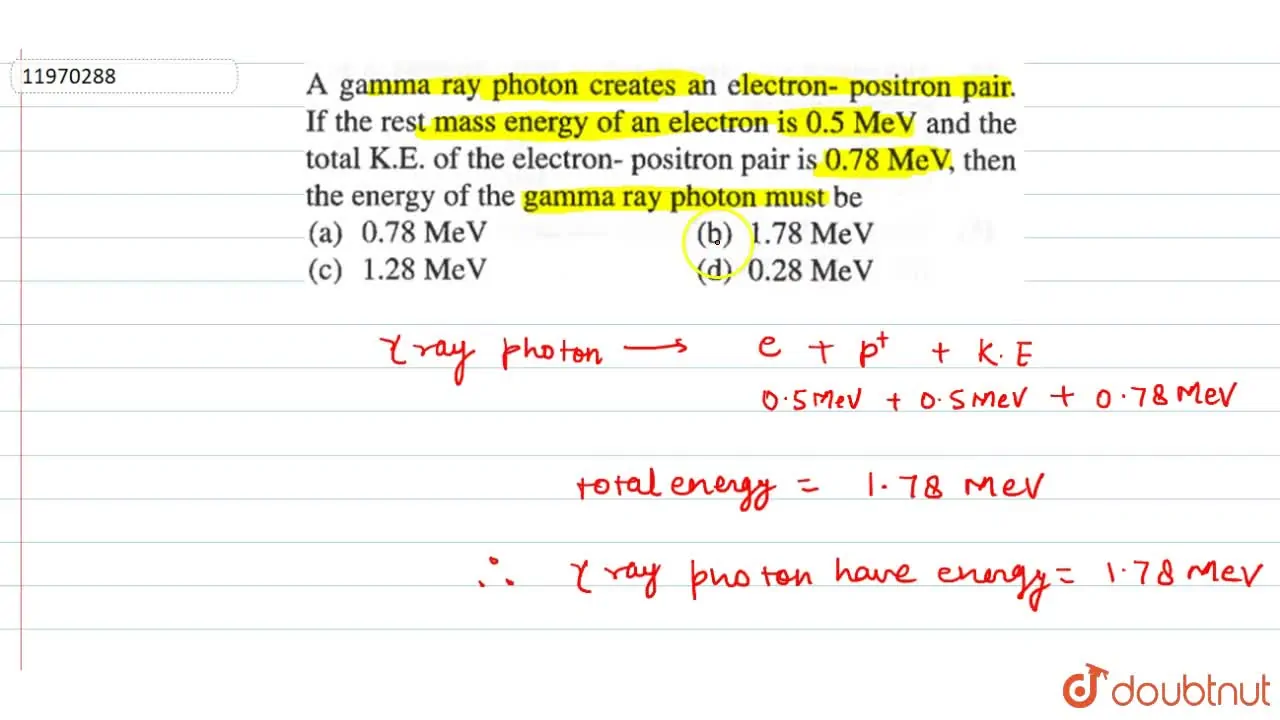 11970288
A gamma ray photon creates an electron- positron pair.
If the rest mass energy of an electron is 0.5 MeV and the
total K.E. of the electron- positron pair is 0.78 MeV, then
the energy of the gamma ray photon must be
(a) 0.78 MeV (b) 1.78 MeV
(c) 1.28 MeV (d) 0.28 MeV
γ ray photon → e + p⁺ + K.E
0.5 MeV + 0.5 MeV + 0.78 MeV
total energy = 1.78 MeV
∴ γ ray photon have energy = 1.78 MeV
doubtnut